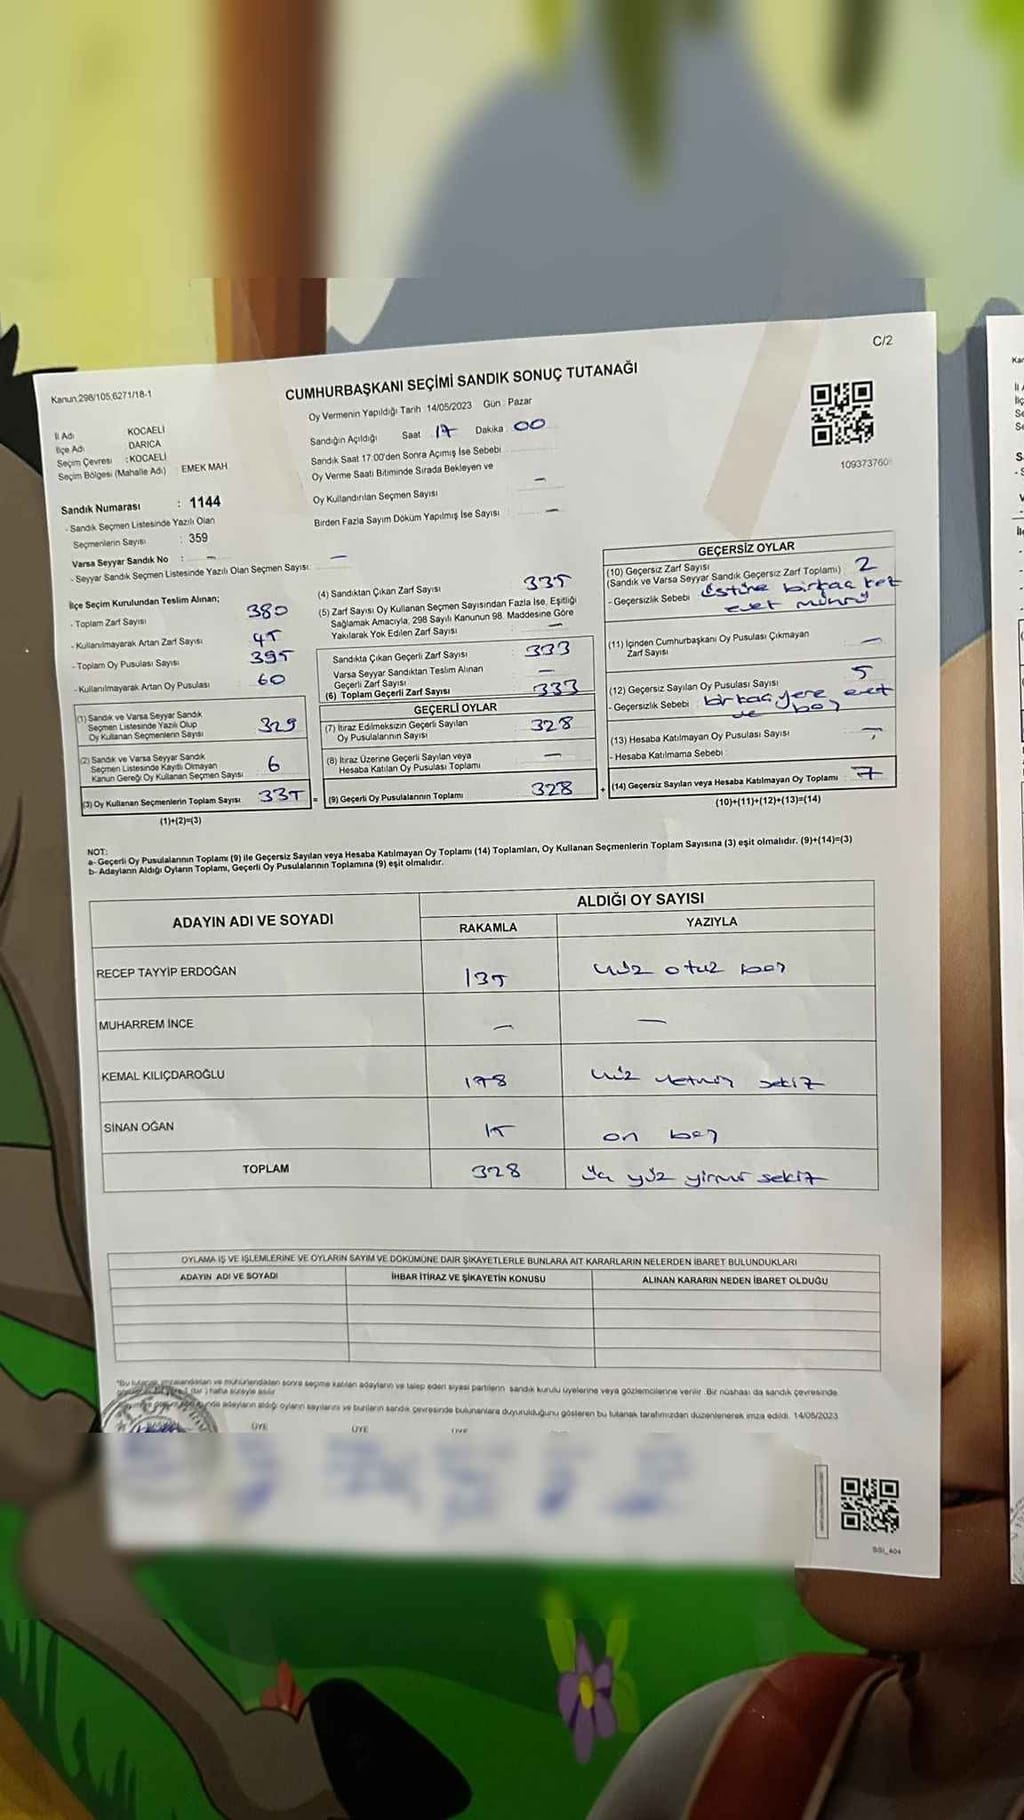 C/2
Kanun.298/105,6271/18-1
CUMHURBAŞKANI SEÇİMİ SANDIK SONUÇ TUTANAĞI
Oy Vermenin Yapıldığı Tarih :14/05/2023 Gün : Pazar
İl Adı KOCAELİ
İlçe Adı DARICA
Seçim Çevresi : KOCAELİ
Seçim Bölgesi (Mahalle Adı) : EMEK MAH
Sandığın Açıldığı Saat 17 Dakika 00
Sandık Saat 17:00'den Sonra Açımış İse Sebebi
Oy Verme Saati Bitiminde Sırada Bekleyen ve
Oy Kullandırılan Seçmen Sayısı —
Birden Fazla Sayım Döküm Yapılmış İse Sayısı —
109373760
Sandık Numarası : 1144
- Sandık Seçmen Listesinde Yazılı Olan
Seçmenlerin Sayısı : 359
Varsa Seyyar Sandık No : —
- Seyyar Sandık Seçmen Listesinde Yazılı Olan Seçmen Sayısı: —
İlçe Seçim Kurulundan Teslim Alınan;
- Toplam Zarf Sayısı 380
- Kullanılmayarak Artan Zarf Sayısı 45
- Toplam Oy Pusulası Sayısı 395
- Kullanılmayarak Artan Oy Pusulası 60
(1) Sandık ve Varsa Seyyar Sandık
Seçmen Listesinde Yazılı Olup
Oy Kullanan Seçmenlerin Sayısı 329
(2) Sandık ve Varsa Seyyar Sandık
Seçmen Listesinde Kayıtlı Olmayan
Kanun Gereği Oy Kullanan Seçmen Sayısı 6
(3) Oy Kullanan Seçmenlerin Toplam Sayısı 335 =
(1)+(2)=(3)
(4) Sandıktan Çıkan Zarf Sayısı : 335
(5) Zarf Sayısı Oy Kullanan Seçmen Sayısından Fazla İse, Eşitliği
Sağlamak Amacıyla, 298 Sayılı Kanunun 98. Maddesine Göre
Yakılarak Yok Edilen Zarf Sayısı —
Sandıkta Çıkan Geçerli Zarf Sayısı : 333
Varsa Seyyar Sandıktan Teslim Alınan
Geçerli Zarf Sayısı —
(6) Toplam Geçerli Zarf Sayısı 333
GEÇERLİ OYLAR
(7) İtiraz Edilmeksizin Geçerli Sayılan
Oy Pusulalarının Sayısı 328
(8) İtiraz Üzerine Geçerli Sayılan veya
Hesaba Katılan Oy Pusulası Toplamı —
(9) Geçerli Oy Pusulalarının Toplamı 328 +
GEÇERSİZ OYLAR
(10) Geçersiz Zarf Sayısı
(Sandık ve Varsa Seyyar Sandık Geçersiz Zarf Toplamı) 2
- Geçersizlik Sebebi : üstüne birkaç kez
evet mührü
(11) İçinden Cumhurbaşkanı Oy Pusulası Çıkmayan
Zarf Sayısı —
(12) Geçersiz Sayılan Oy Pusulası Sayısı 5
- Geçersizlik Sebebi birkaç yere evet
ve boş
(13) Hesaba Katılmayan Oy Pusulası Sayısı : —
- Hesaba Katılmama Sebebi :
(14) Geçersiz Sayılan veya Hesaba Katılmayan Oy Toplamı : 7
(10)+(11)+(12)+(13)=(14)
NOT:
a- Geçerli Oy Pusulalarının Toplamı (9) ile Geçersiz Sayılan veya Hesaba Katılmayan Oy Toplamı (14) Toplamları, Oy Kullanan Seçmenlerin Toplam Sayısına (3) eşit olmalıdır. (9)+(14)=(3)
b- Adayların Aldığı Oyların Toplamı, Geçerli Oy Pusulalarının Toplamına (9) eşit olmalıdır.
ADAYIN ADI VE SOYADI
ALDIĞI OY SAYISI
RAKAMLA YAZIYLA
RECEP TAYYİP ERDOĞAN 135 yüz otuz beş
MUHARREM İNCE — —
KEMAL KILIÇDAROĞLU 178 yüz yetmiş sekiz
SİNAN OĞAN 15 on beş
TOPLAM 328 üç yüz yirmi sekiz
OYLAMA İŞ VE İŞLEMLERİNE VE OYLARIN SAYIM VE DÖKÜMÜNE DAİR ŞİKAYETLERLE BUNLARA AİT KARARLARIN NELERDEN İBARET BULUNDUKLARI
ADAYIN ADI VE SOYADI İHBAR İTİRAZ VE ŞİKAYETİN KONUSU ALINAN KARARIN NEDEN İBARET OLDUĞU
*Bu tutanak imzalandıktan ve mühürlendikten sonra seçime katılan adayların ve talep eden siyasi partilerin sandık kurulu üyelerine veya gözlemcilerine verilir. Bir nüshası da sandık çevresinde
hafta süreyle asılır.
adayların aldığı oyların sayılarını ve bunların sandık çevresinde bulunanlara duyurulduğunu gösteren bu tutanak tarafımızdan düzenlenerek imza edildi. 14/05/2023
ÜYE ÜYE ÜYE